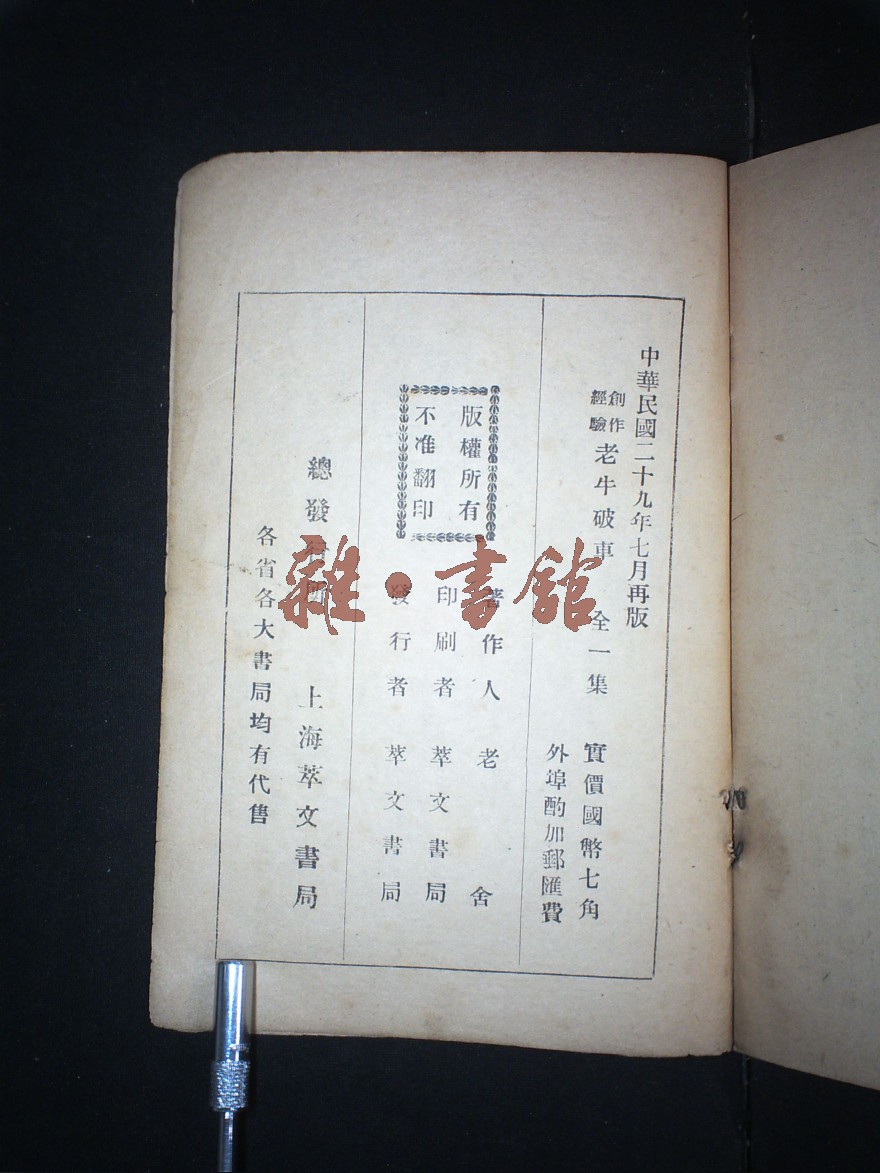 中華民國二十九年七月再版
創作經驗 老牛破車 全一集
實價國幣七角
外埠酌加郵匯費
版權所有
不准翻印
著作人 老舍
印刷者 萃文書局
發行者 萃文書局
總發行所 上海萃文書局
各省各大書局均有代售
雜·書館